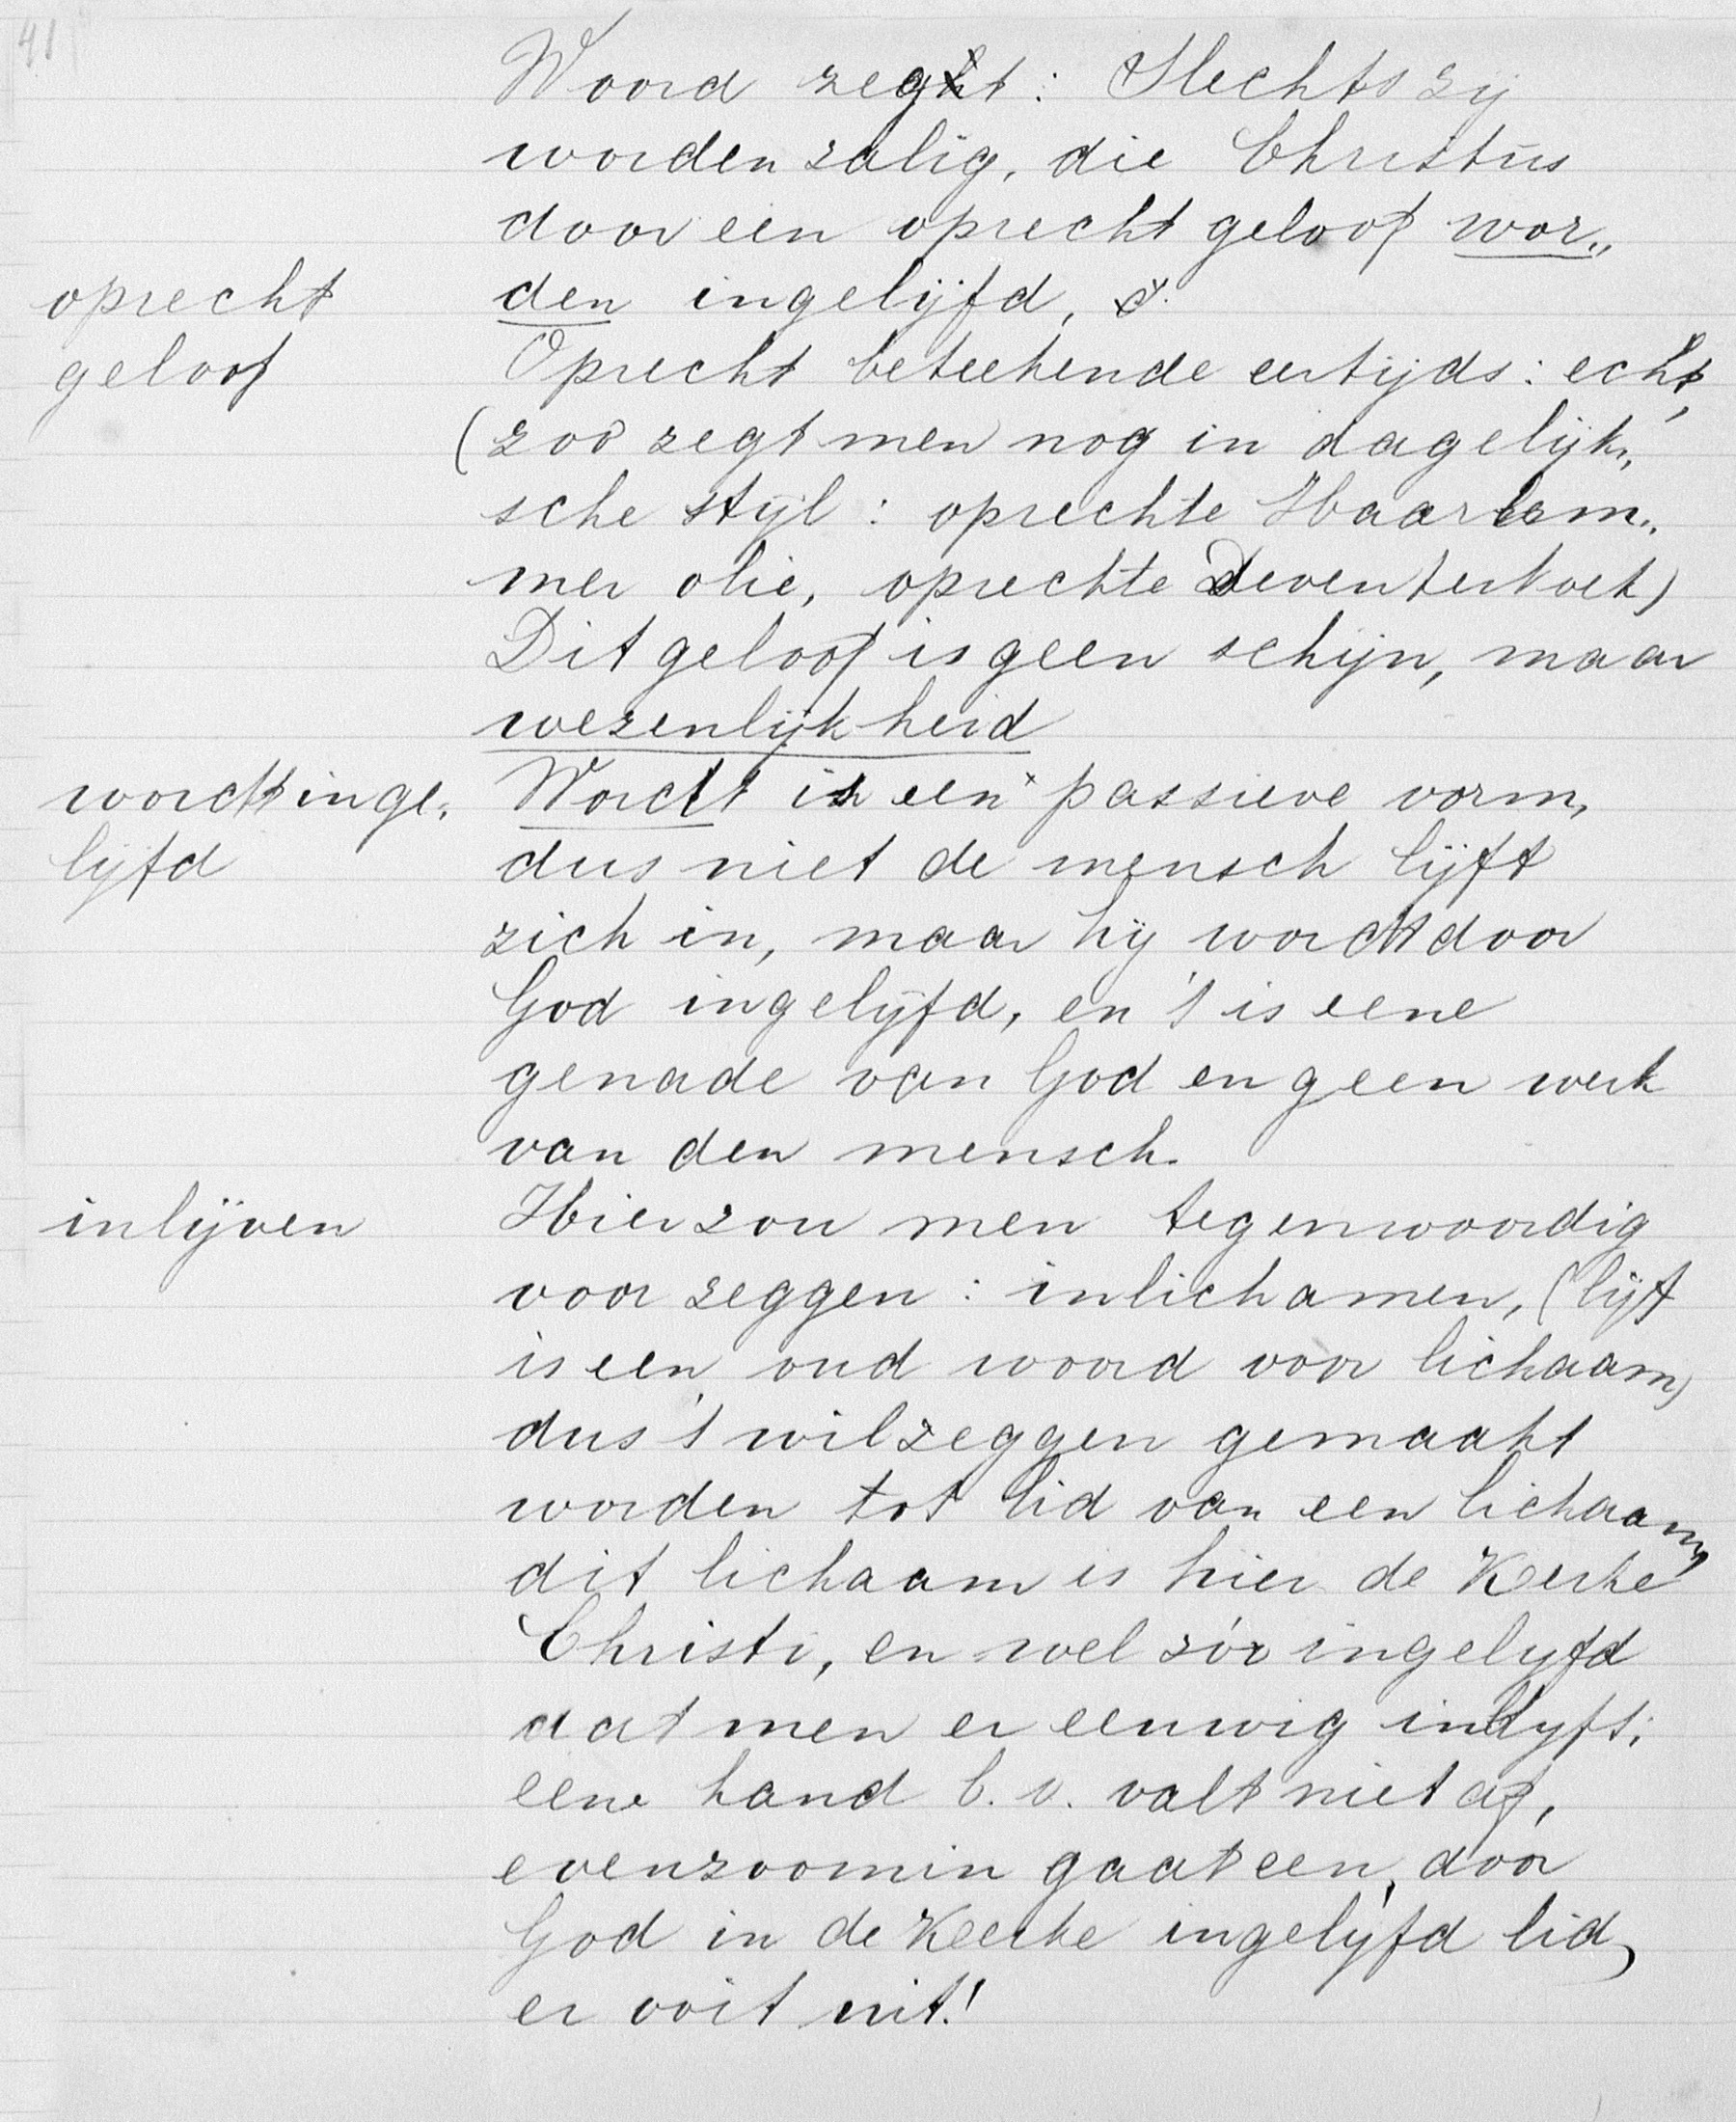 41
Woord zegt: Slechts zij
worden zalig, die Christus
door een oprecht geloof wor„
oprecht den ingelijfd,
geloof Oprecht beteekende eertijds: echt,
(zoo zegt men nog in dagelijk„
sche stijl: oprechte Haarlem„
mer olie, oprechte Deventerkoek)
Dit geloof is geen schijn, maar
wezenlijkheid
wordt inge„ Wordt is een passieve vorm,
lijfd dus niet de mensch lijft
zich in, maar hij wordt door
God ingelijfd, en 't is eene
genade van God en geen werk
van den mensch.
inlijven Hier zou men tegenwoordig
voor zeggen: inlichamen, (lijf
is een oud woord voor lichaam)
dus 't wil zeggen gemaakt
worden tot lid van een lichaam,
dit lichaam is hier de Kerke
Christi, en wel zóó ingelijfd
dat men er eeuwig in blijft;
eene hand b.v. valt niet af,
evenzoomin gaat een, door
God in de Kerke ingelijfd lid,
er ooit uit!